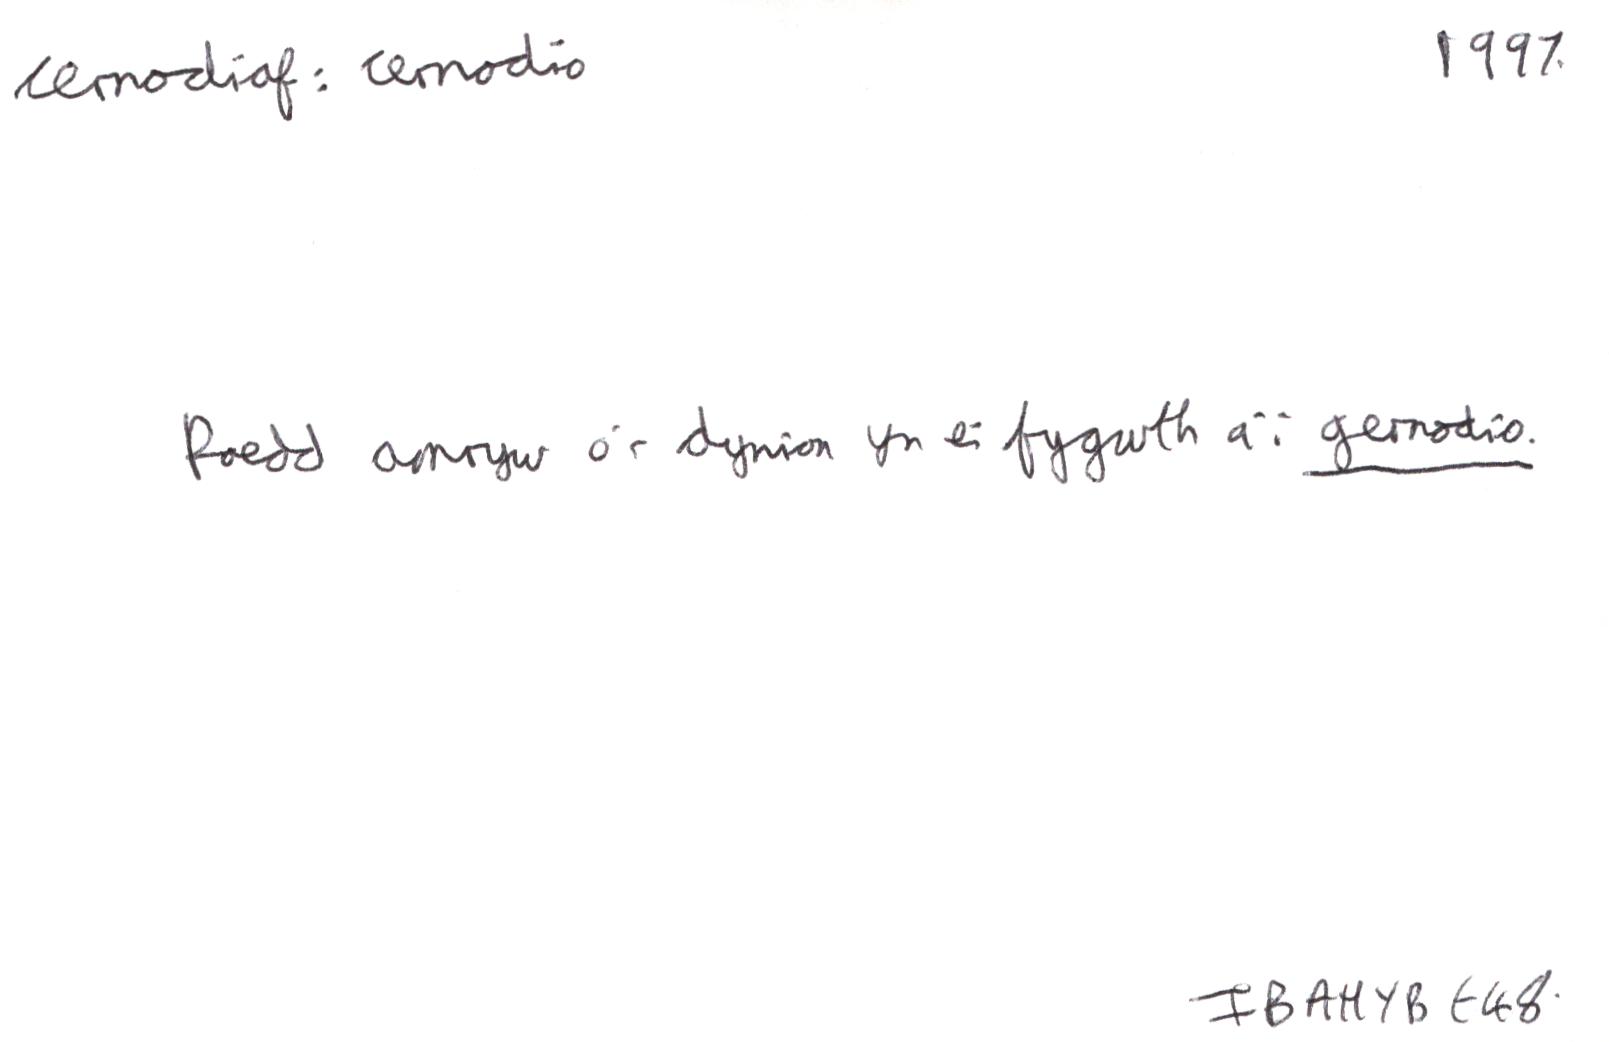 cernodiaf: cernodio 1997.
Roedd amryw o'r dynion yn ei fygwth a'i gernodio.
IBAHYB t48.